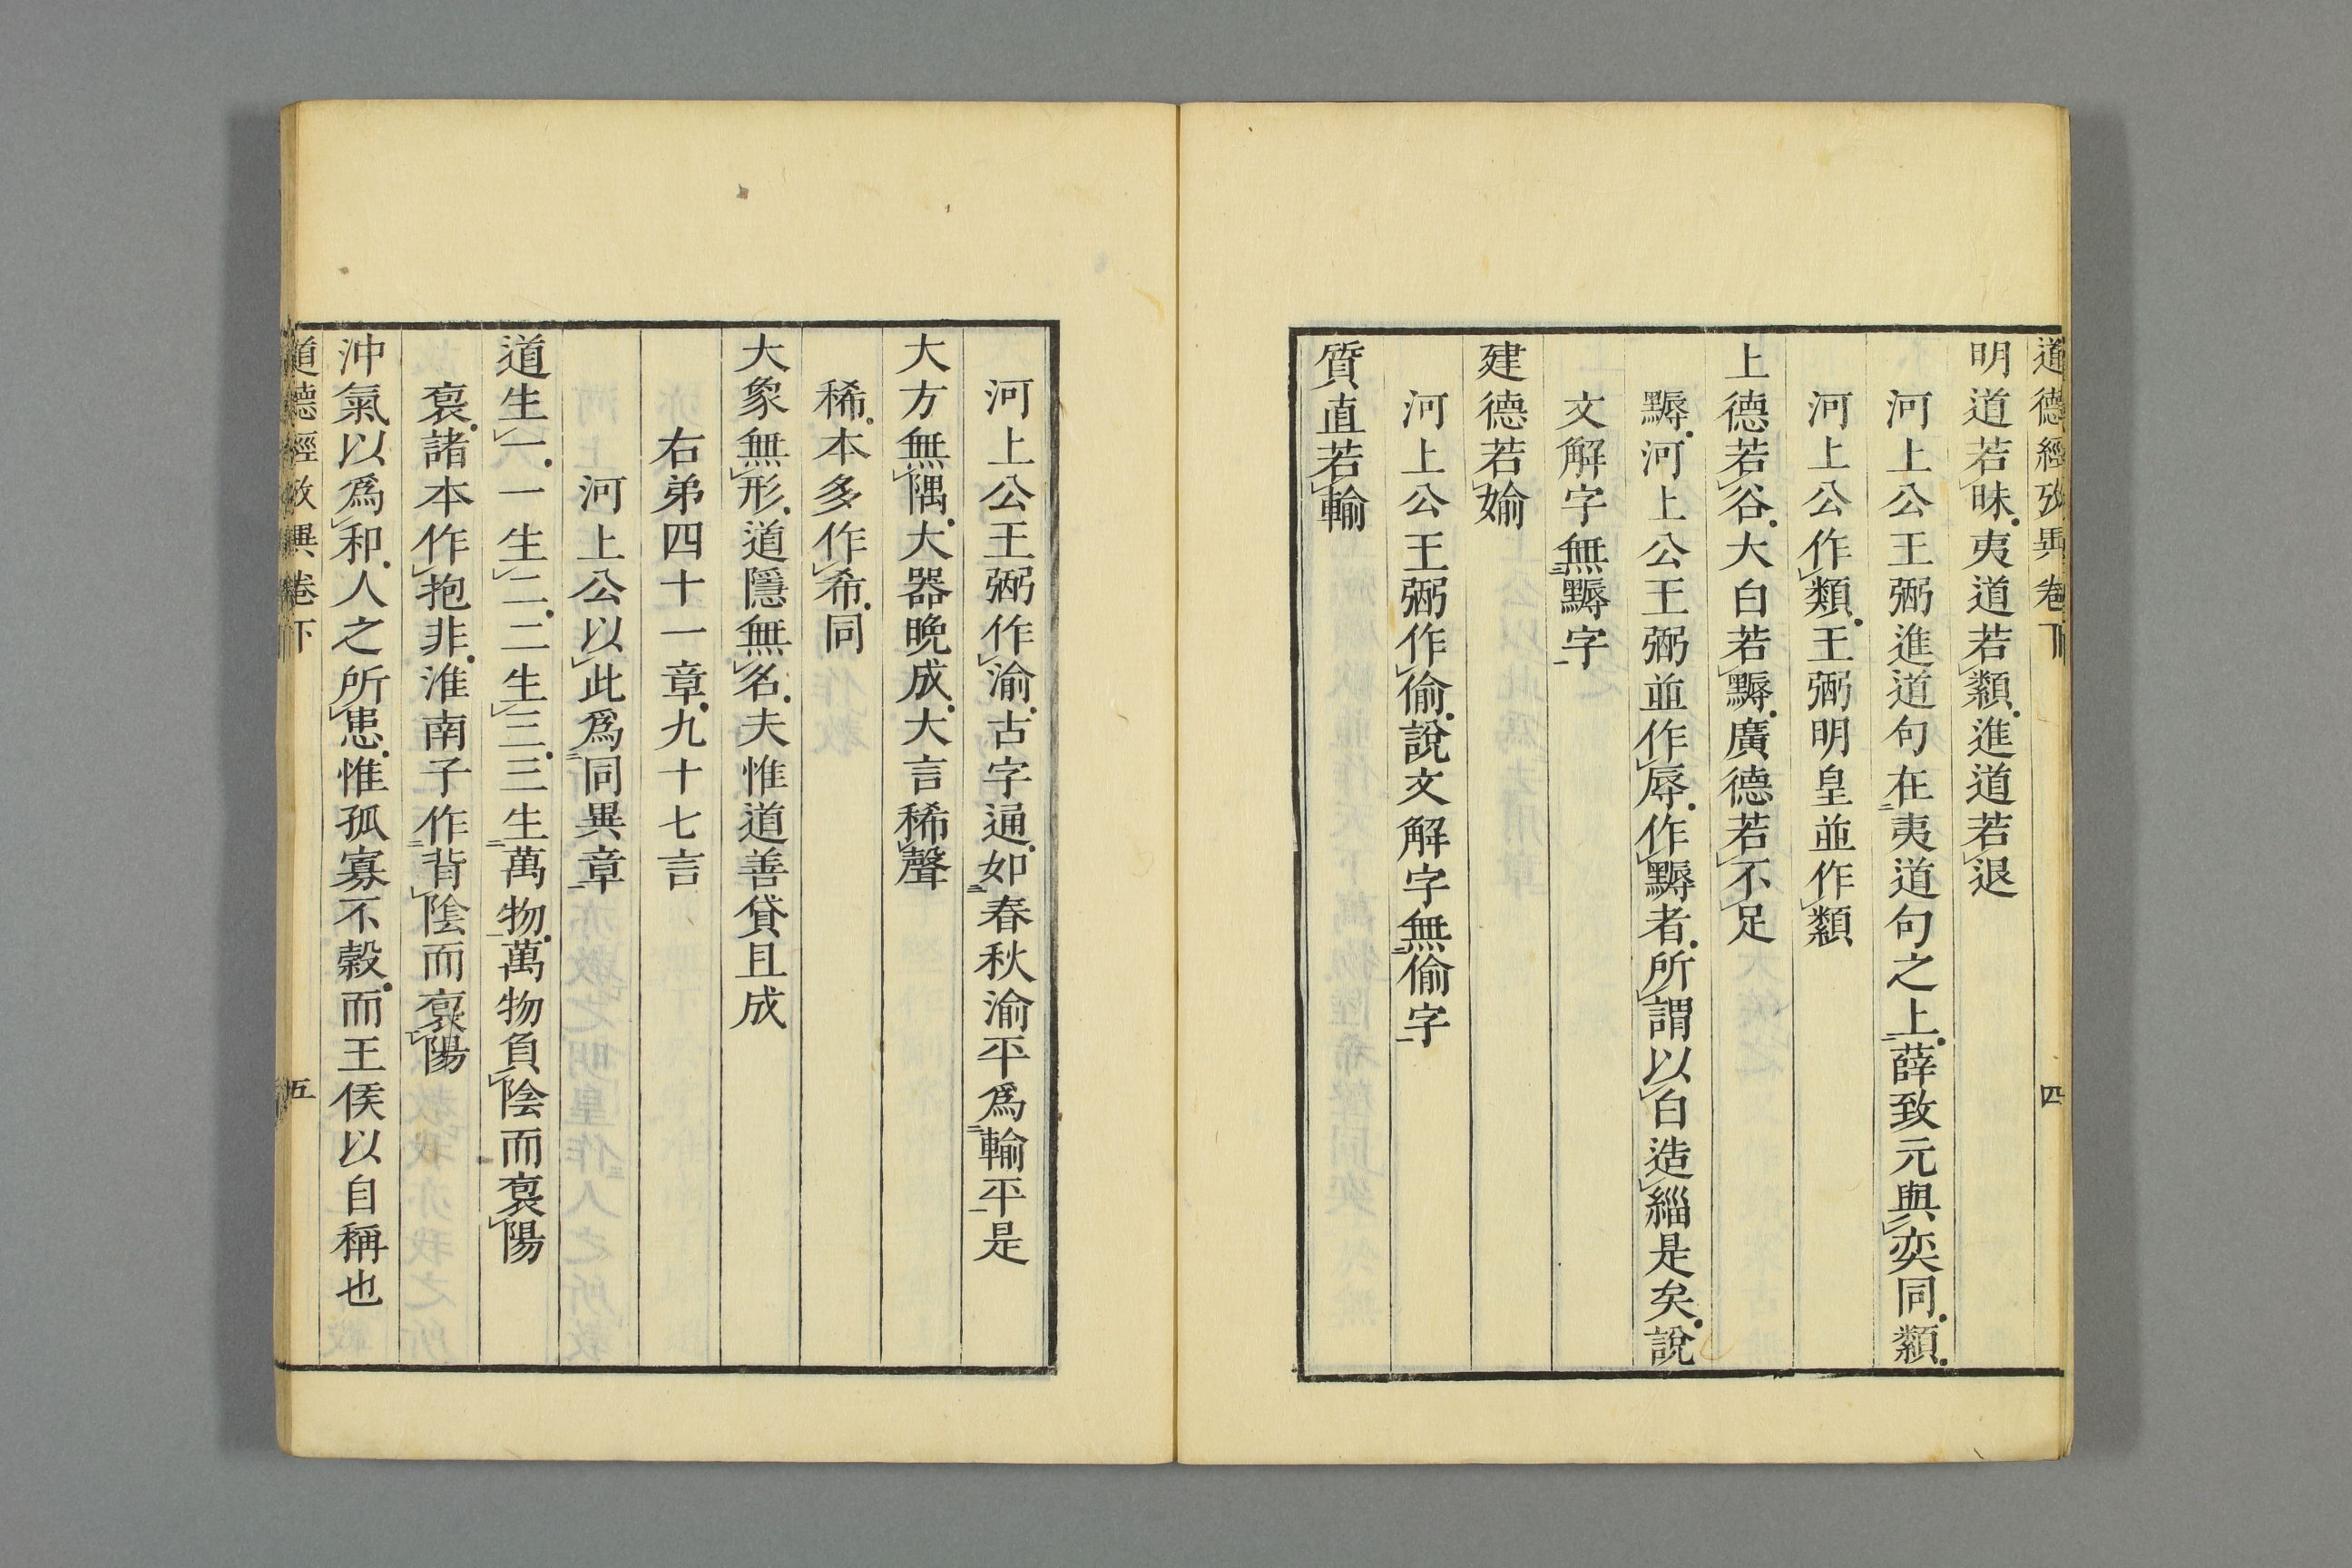 道德經攷異卷下 四
明道若昧夷道若纇進道若退
河上公王弼進道句在夷道句之上薛致元與奕同纇
河上公作類王弼明皇並作纇
上德若谷大白若黣廣德若不足
黣河上公王弼並作辱作黣者所謂以白造緇是矣說
文解字無黣字
建德若媮
河上公王弼作偷說文解字無偷字
質直若輸
河上公王弼作渝古字通如春秋渝平爲輸平是
大方無隅大器晚成大言稀聲
稀本多作希同
大象無形道隱無名夫惟道善貸且成
右弟四十一章九十七言
河上公以此爲同異章
道生一一生二二生三三生萬物萬物負陰而裒陽
裒諸本作抱非淮南子作背陰而裒陽
沖氣以爲和人之所患惟孤寡不穀而王侯以自稱也
道德經攷異卷下 五